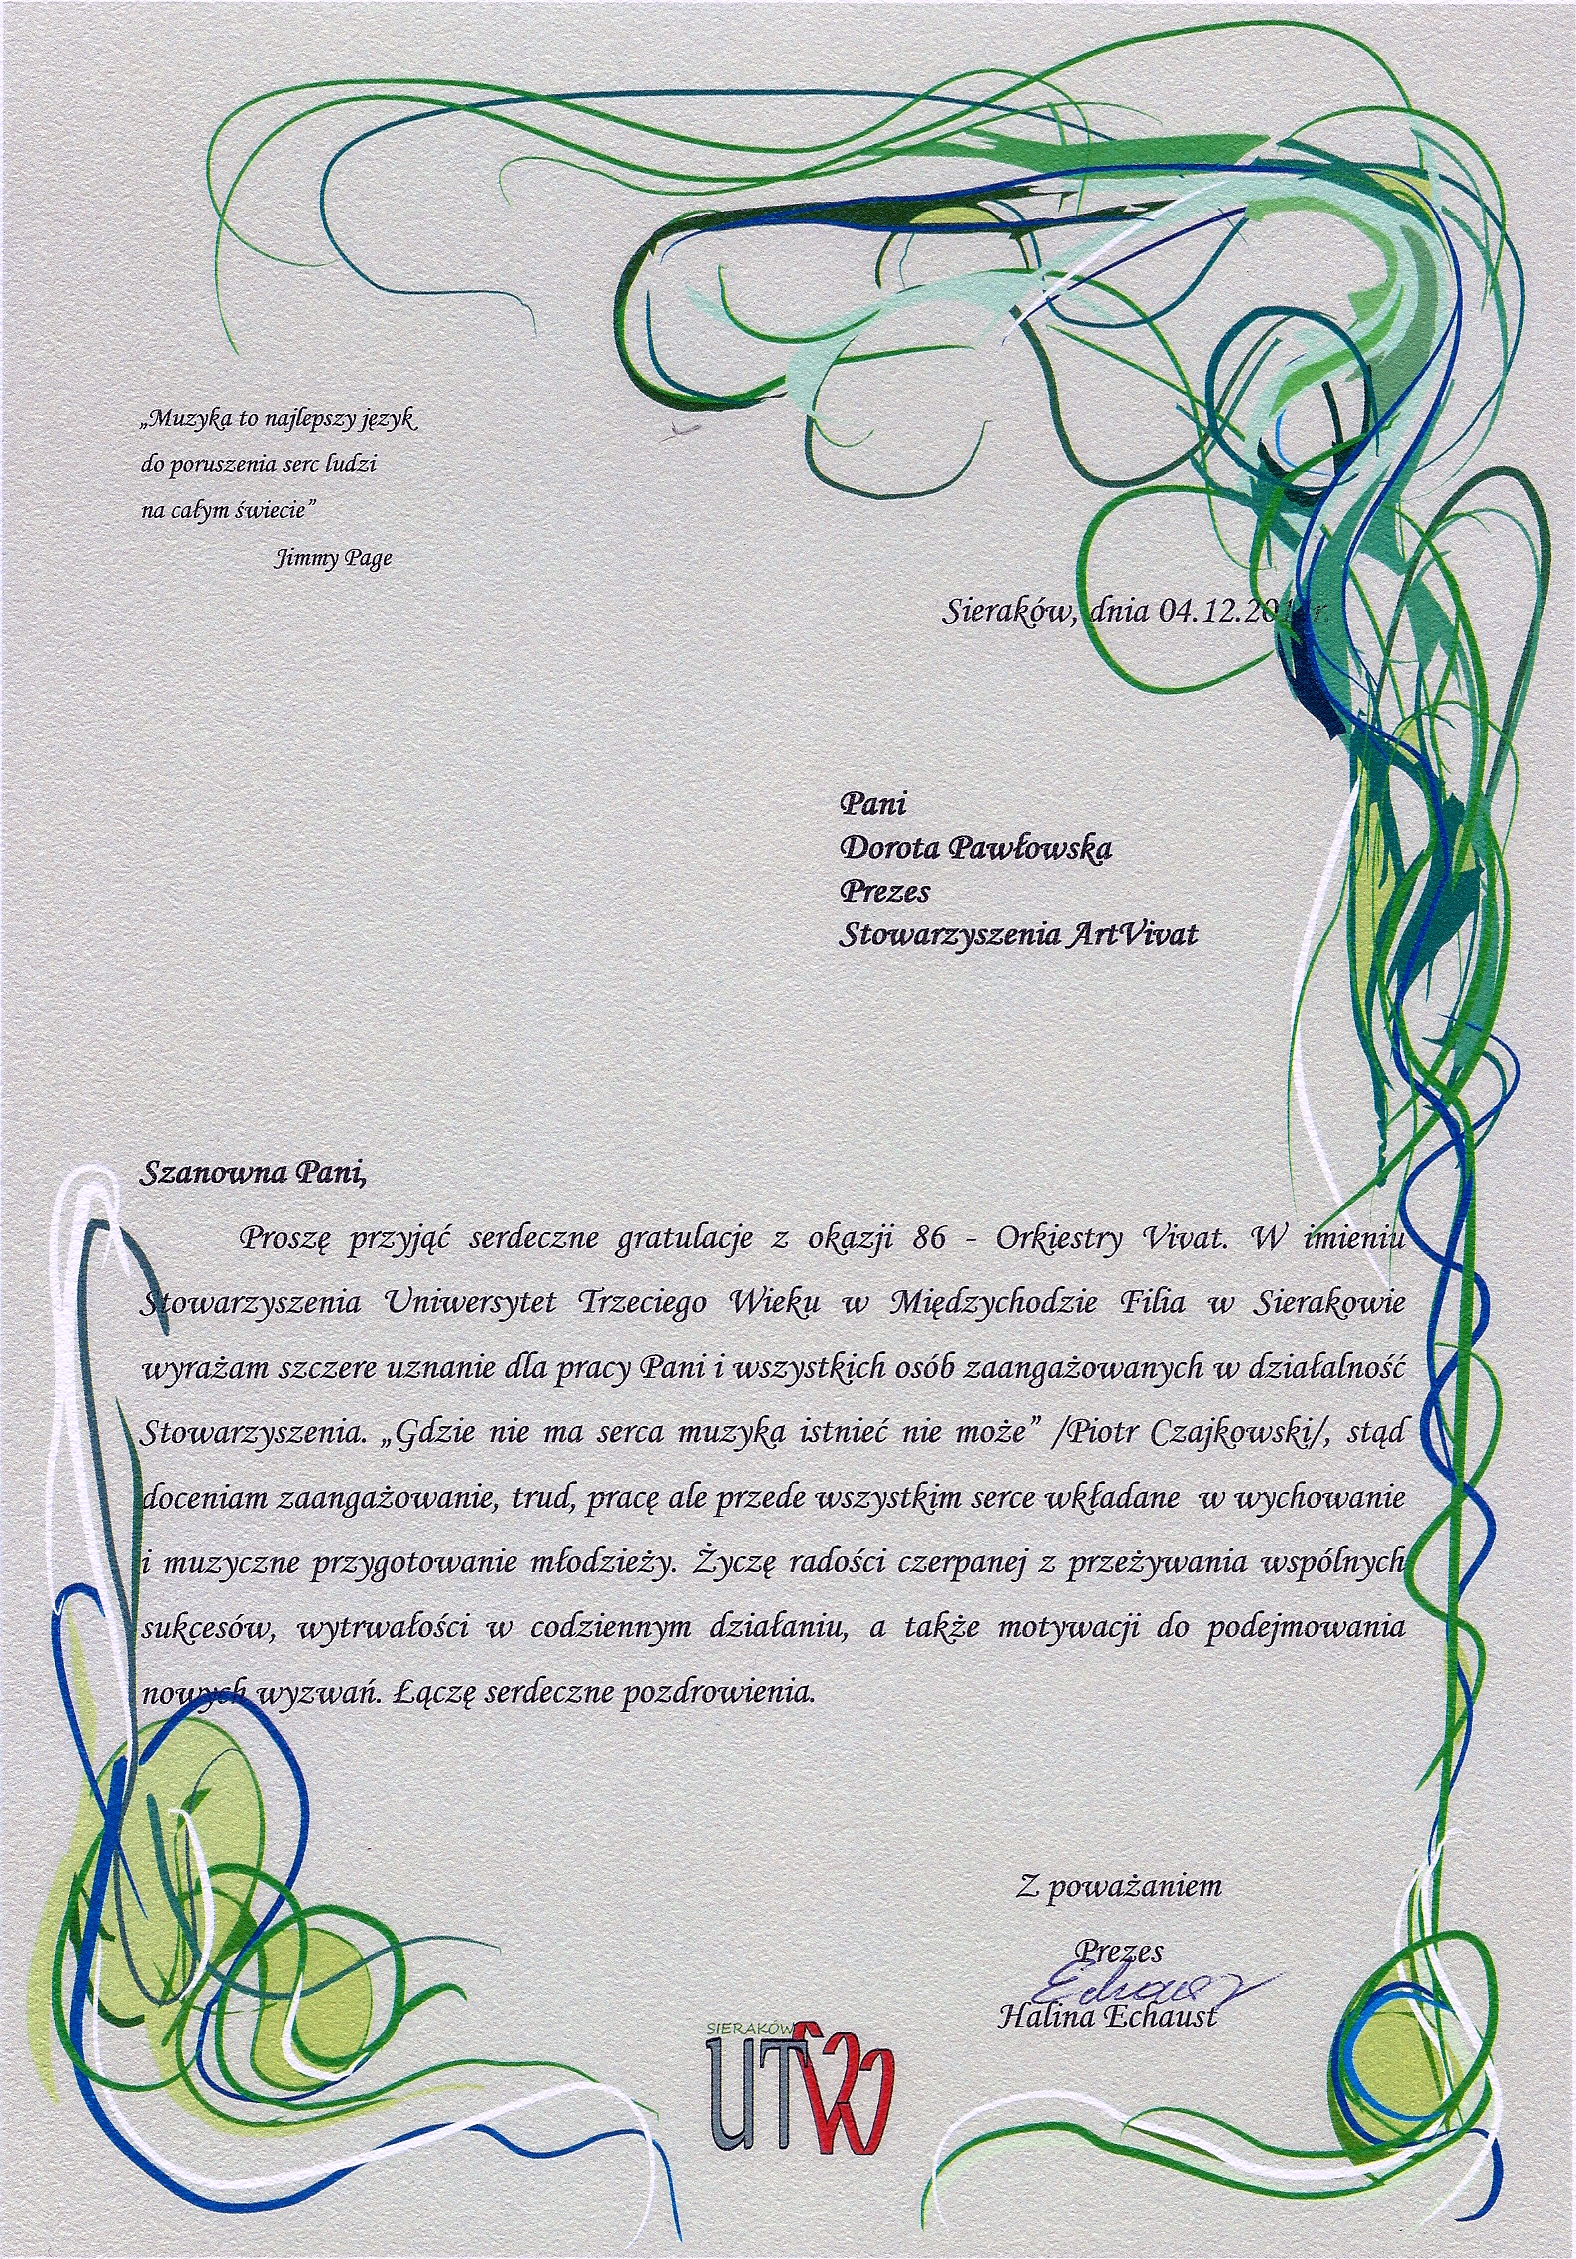 „Muzyka to najlepszy język
do poruszenia serc ludzi
na całym świecie”
Jimmy Page
Sieraków, dnia
Pani
Dorota Pawłowska
Prezes
Stowarzyszenia ArtVivat
Szanowna Pani,
Proszę przyjąć serdeczne gratulacje z okazji 86 - Orkiestry Vivat. W imieniu
Stowarzyszenia Uniwersytet Trzeciego Wieku w Międzychodzie Filia w Sierakowie
wyrażam szczere uznanie dla pracy Pani i wszystkich osób zaangażowanych w działalność
Stowarzyszenia. „Gdzie nie ma serca muzyka istnieć nie może” /Piotr Czajkowski/, stąd
doceniam zaangażowanie, trud, pracę ale przede wszystkim serce wkładane w wychowanie
i muzyczne przygotowanie młodzieży. Życzę radości czerpanej z przeżywania wspólnych
sukcesów, wytrwałości w codziennym działaniu, a także motywacji do podejmowania
nowych wyzwań. Łączę serdeczne pozdrowienia.
Z poważaniem
Prezes
Echaust
Halina Echaust
SIERAKÓW
UTW